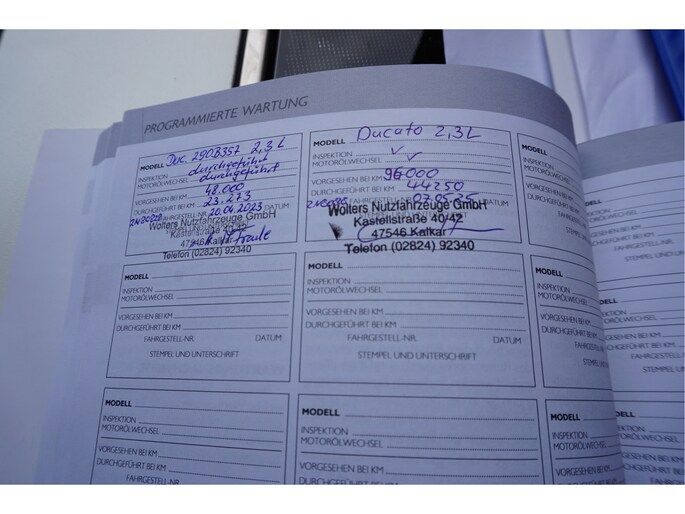 PROGRAMMIERTE WARTUNG
MODELL Duc. 2,3 L
INSPEKTION durchgeführt
MOTORÖLWECHSEL durchgeführt
VORGESEHEN BEI KM 48.000
DURCHGEFÜHRT BEI KM 23.273
FAHRGESTELL-NR. 20.04.2023 DATUM
Wolters Nutzfahrzeuge GmbH
Kastellstraße 40/42
47546 Kalkar
Telefon (02824) 92340
MODELL Ducato 2,3L
INSPEKTION ✓
MOTORÖLWECHSEL ✓
VORGESEHEN BEI KM 96000
DURCHGEFÜHRT BEI KM 44250
Wolters Nutzfahrzeuge GmbH
Kastellstraße 40/42
47546 Kalkar
Telefon (02824) 92340
MODELL
INSPEKTION
MOTORÖLWECHSEL
VORGESEHEN BEI KM
DURCHGEFÜHRT BEI KM
MODELL
INSPEKTION
MOTORÖLWECHSEL
VORGESEHEN BEI KM
DURCHGEFÜHRT BEI KM
FAHRGESTELL-NR. DATUM
STEMPEL UND UNTERSCHRIFT
MODELL
INSPEKTION
MOTORÖLWECHSEL
VORGESEHEN BEI KM
DURCHGEFÜHRT BEI KM
FAHRGESTELL-NR. DATUM
STEMPEL UND UNTERSCHRIFT
MODELL
INSPEKTION
MOTORÖLWECHSEL
VORGESEHEN BEI KM
DURCHGEFÜHRT BEI KM
FAHRGESTELL-NR.
STEMPEL UND
MODELL
INSPEKTION
MOTORÖLWECHSEL
VORGESEHEN BEI KM
DURCHGEFÜHRT BEI KM
FAHRGESTELL-NR.
MODELL
INSPEKTION
MOTORÖLWECHSEL
VORGESEHEN BEI KM
DURCHGEFÜHRT BEI KM
MODELL
INSPEKTION
MOTORÖLWECHSEL
VORGESEHEN BEI KM